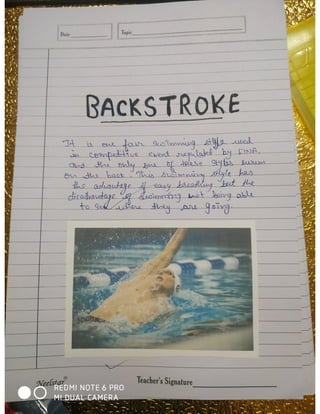 Date
Topic
BACKSTROKE
It is one four swimming style used
in competitive event regulated by FINA,
and the only one of these styles swum
on the back. This swimming style has
the advantage of easy breathing but the
disadvantage of swimming not being able
to see where they are going.
Neelstar
Teacher's Signature
REDMI NOTE 6 PRO
MI DUAL CAMERA